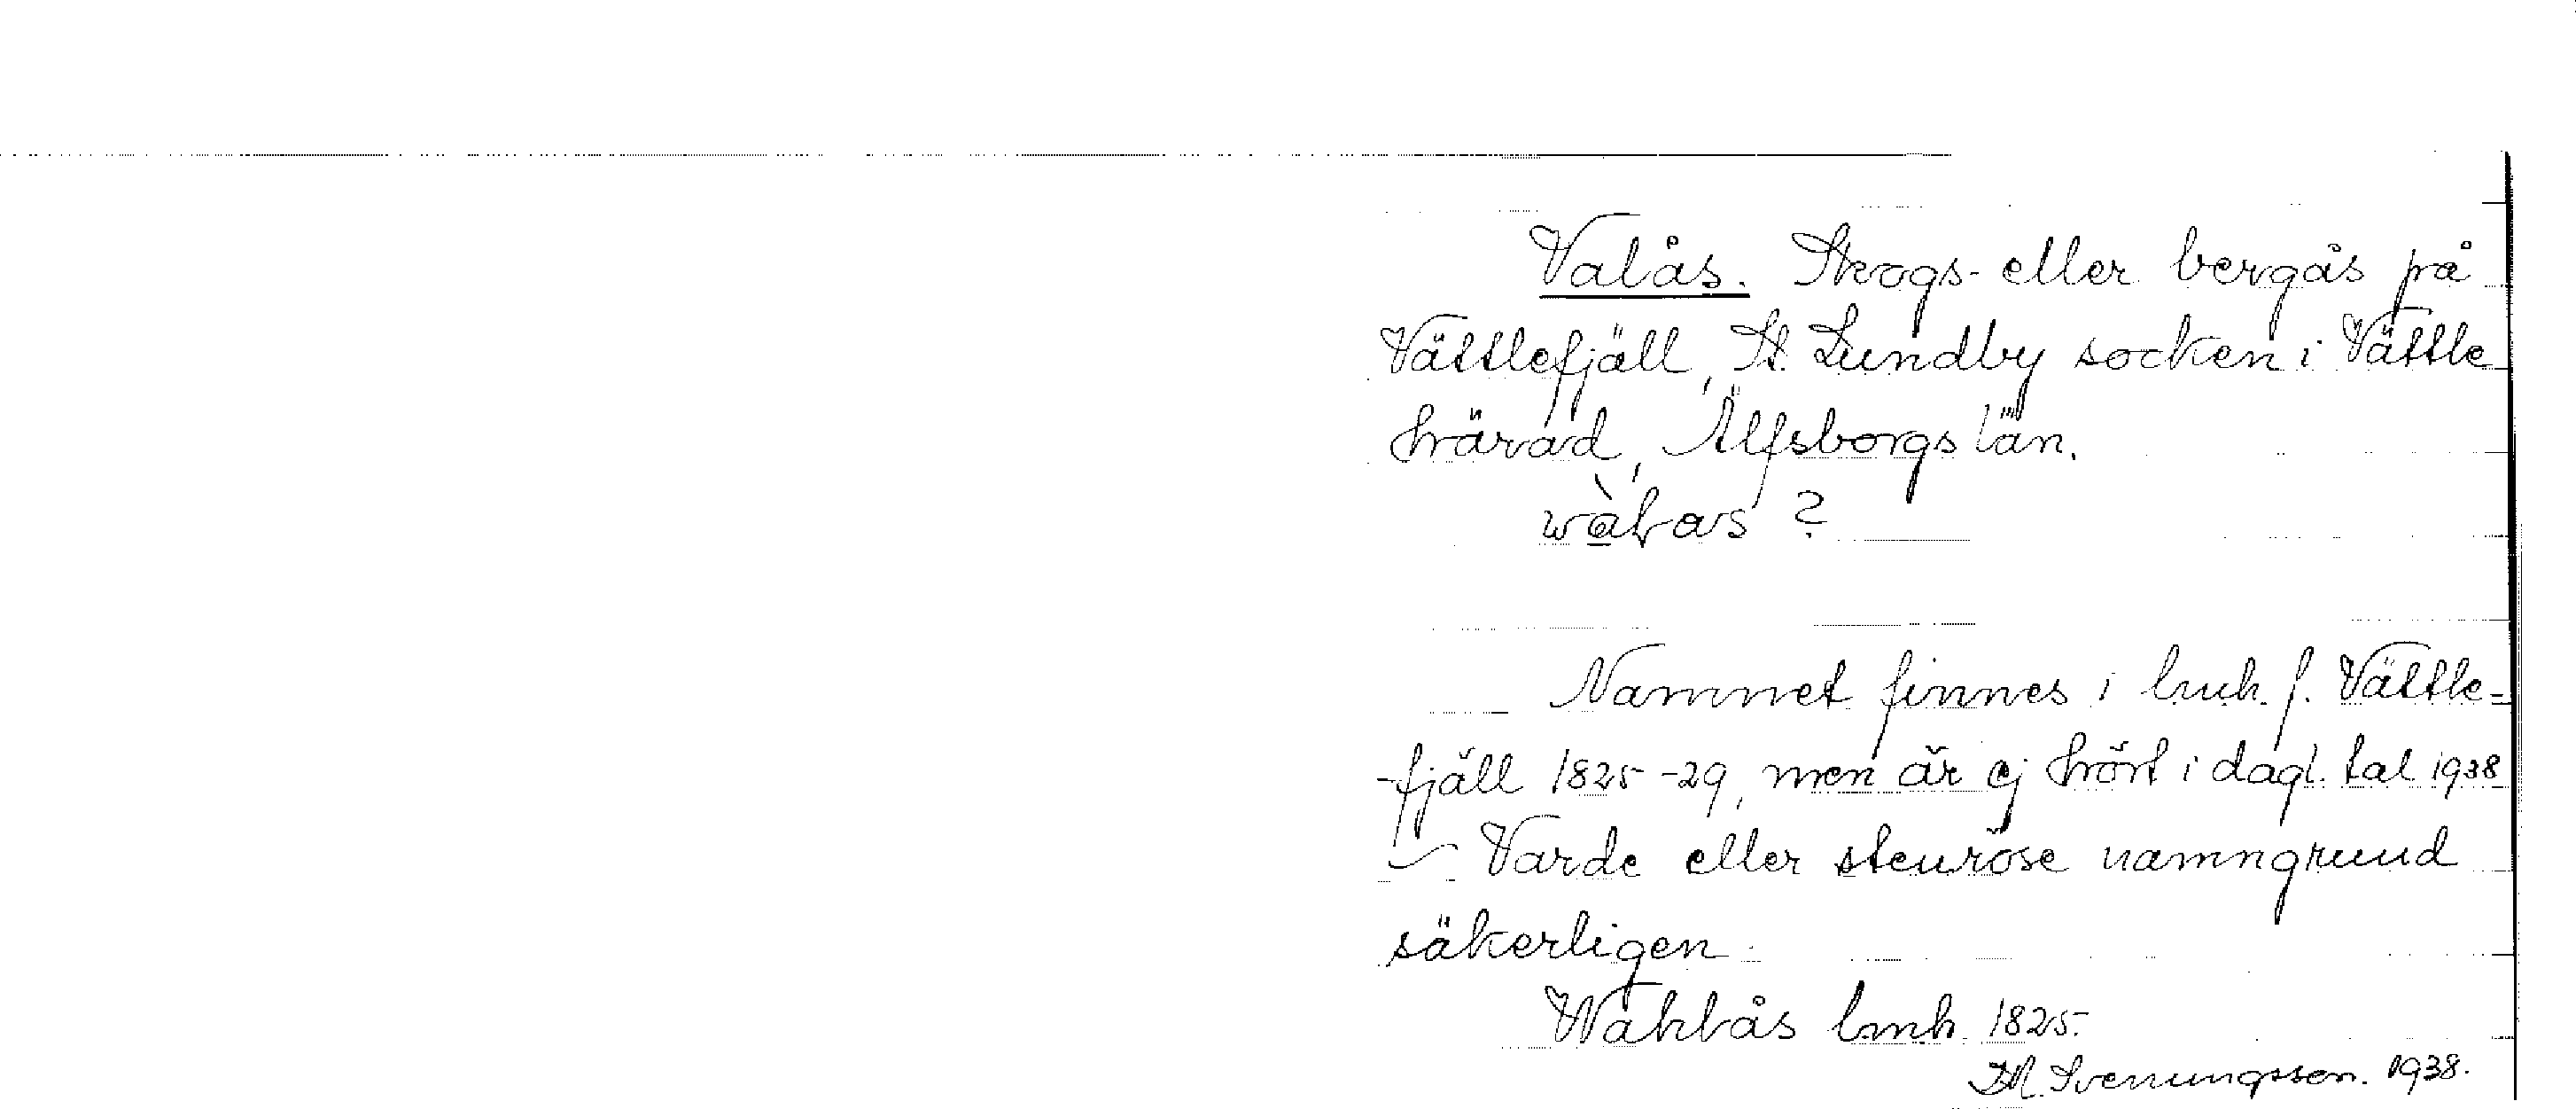 Valås. Skogs- eller bergås på
Vättlefjäll, St. Lundby socken i Vättle
härad, Älfsborgs län.
wàlas ?
Namnet finnes i lmh. f. Vättle-
-fjäll 1825-29, men är ej hört i dagl. tal 1938
Varde eller stenröse namngrund
säkerligen.
Wahlås lmh. 1825.
Svenungsson. 1938.